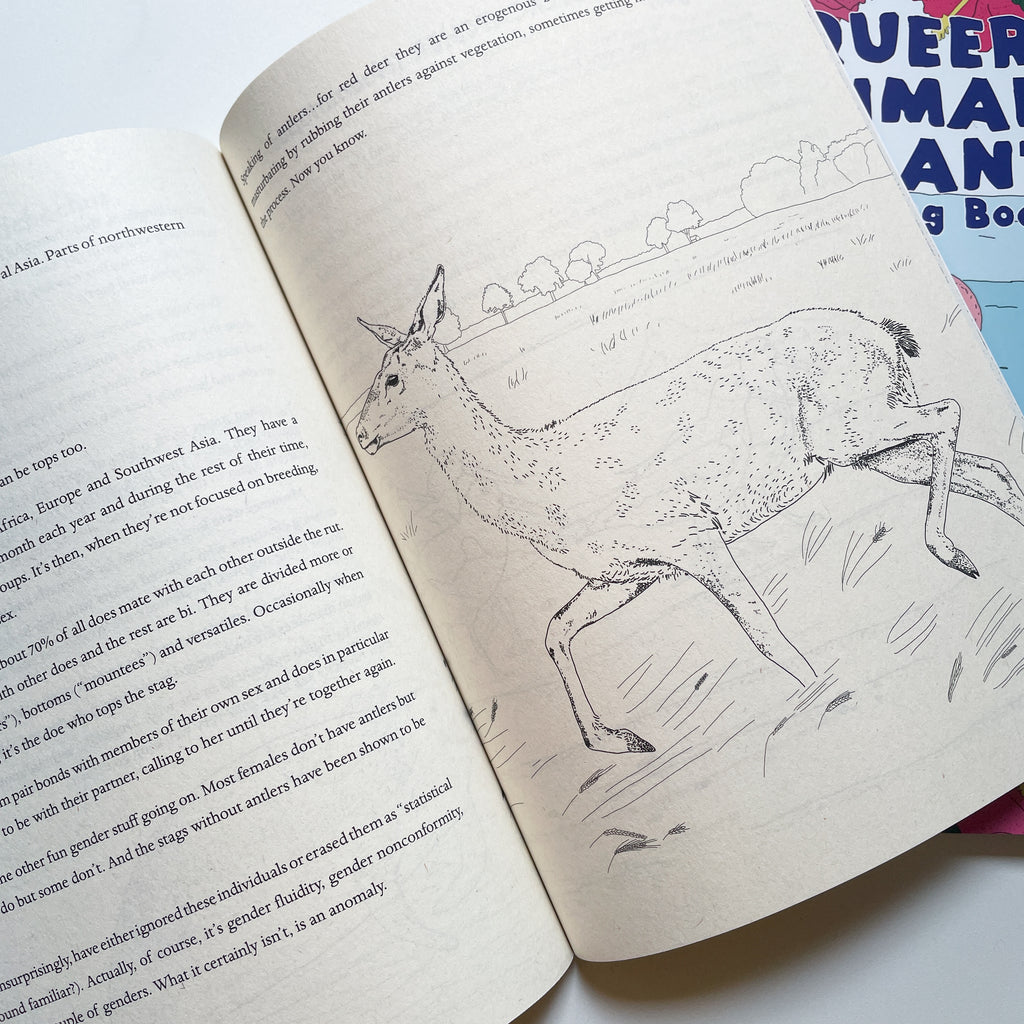 al Asia. Parts of northwestern
an be tops too.
frica, Europe and Southwest Asia. They have a
month each year and during the rest of their time,
oups. It's then, when they're not focused on breeding,
ex.
bout 70% of all does mate with each other outside the rut.
th other does and the rest are bi. They are divided more or
rs"), bottoms ("mountees") and versatiles. Occasionally when
, it's the doe who tops the stag.
m pair bonds with members of their own sex and does in particular
to be with their partner, calling to her until they're together again.
ne other fun gender stuff going on. Most females don't have antlers but
do but some don't. And the stags without antlers have been shown to be
nsurprisingly, have either ignored these individuals or erased them as "statistical
ound familiar?). Actually, of course, it's gender fluidity, gender nonconformity,
uple of genders. What it certainly isn't, is an anomaly.
Speaking of antlers...for red deer they are an erogenous
masturbating by rubbing their antlers against vegetation, sometimes getting
the process. Now you know.
QUEER
IMAL
ANT
g Boo